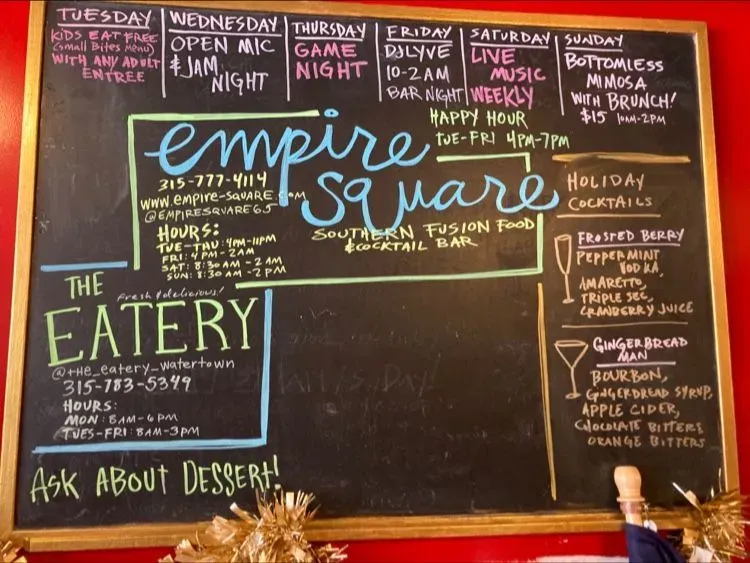 TUESDAY
KIDS EAT FREE
(small Bites Menu)
WITH ANY ADULT
ENTREE
WEDNESDAY
OPEN MIC
& JAM
NIGHT
THURSDAY
GAME
NIGHT
FRIDAY
DJLYVE
10-2AM
BAR NIGHT
SATURDAY
LIVE
MUSIC
WEEKLY
SUNDAY
BOTTOMLESS
MIMOSA
WITH BRUNCH!
$15 10AM-2PM
HAPPY HOUR
TUE-FRI 4PM-7PM
empire
square
SOUTHERN FUSION FOOD
& COCKTAIL BAR
315-777-4114
www.EMPIRE-SQUARE.COM
@EMPIRESQUARE65
HOURS:
TUE-THU: 4PM-11PM
FRI: 4PM-2AM
SAT: 8:30AM-2AM
SUN: 8:30AM-2PM
THE
Fresh & delicious!
EATERY
@the_eatery_watertown
315-783-5349
HOURS:
MON: 8AM-6PM
TUES-FRI: 8AM-3PM
ASK ABOUT DESSERT!
HOLIDAY
COCKTAILS
FROSTED BERRY
PEPPERMINT
VODKA,
AMARETTO,
TRIPLE SEC,
CRANBERRY JUICE
GINGERBREAD
MAN
BOURBON,
GINGERBREAD SYRUP,
APPLE CIDER,
CHOCOLATE BITTERS
ORANGE BITTERS